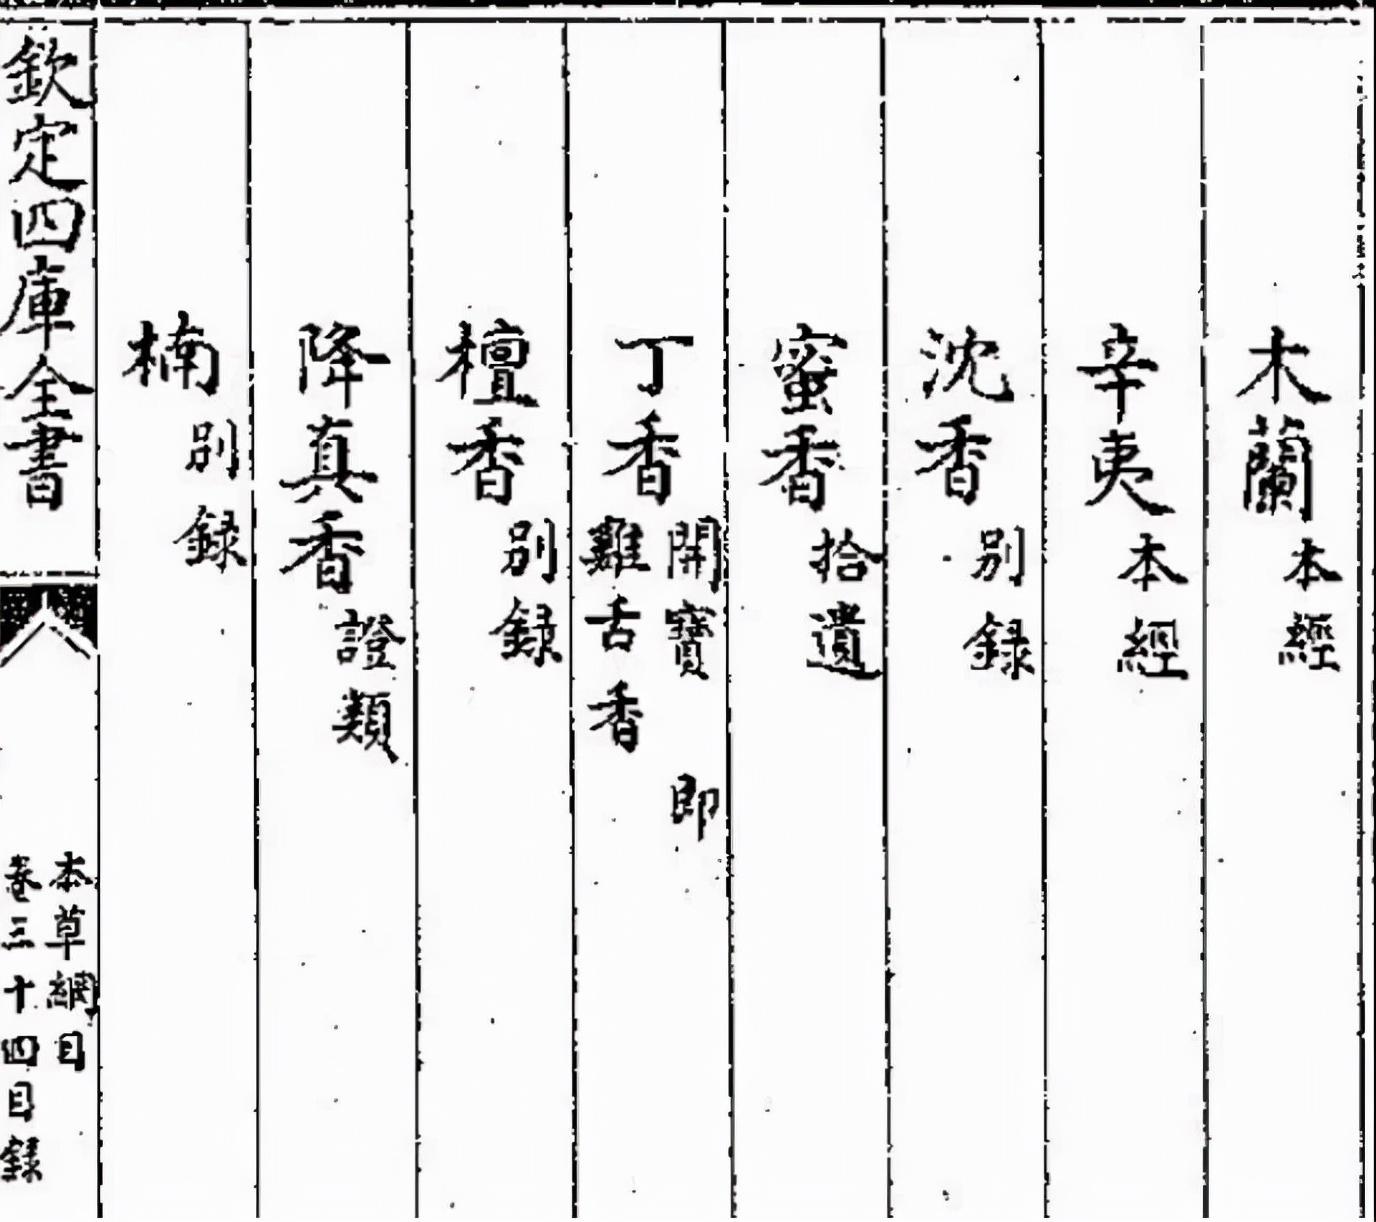 木蘭本經
辛夷本經
沈香别録
蜜香拾遺
丁香開寶 即
雞舌香
檀香别録
降真香證類
楠别録
欽定四庫全書
本草綱目
卷三十四目録